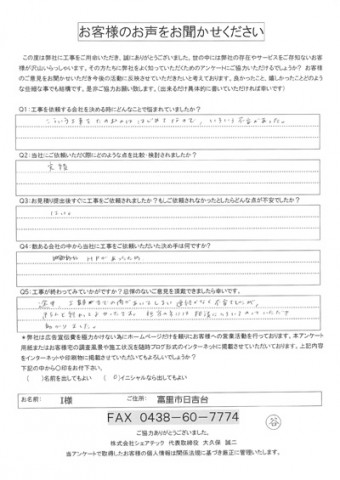 お客様のお声をお聞かせください
この度は弊社に工事をご用命いただき、誠にありがとうございました。世の中には弊社の存在やサービスをご存知ないお客
様が沢山いらっしゃいます。その方たちに弊社をよく知っていただくためのアンケートにご協力いただけるでしょうか? お客様
のご意見をお聞かせいただき今後の活動に反映させていただきたいと考えております。良かったこと、嬉しかったことどのよう
な些細な事でも結構です。是非ご協力お願い致します。(出来るだけ具体的に書いていただければ幸いです)
Q1:工事を依頼する会社を決める時にどんなことで悩まれていましたか?
Q2:当社にご依頼いただく際にどのような点を比較・検討されましたか?
実績
Q3:お見積り提出後すぐに工事をご依頼されましたか?もしご依頼されなかったとしたらどんな点が不安でしたか?
はい。
Q4:数ある会社の中から当社に工事をご依頼いただいた決め手は何ですか?
HPがよかったため
Q5:工事が終わってみていかがですか?忌憚のないご意見を頂戴できましたら幸いです。
助かりました。
*弊社は広告宣伝費を極力かけない為にホームページだけを頼りにお客様への営業活動を行っております。本アンケート
用紙またはお客様宅の調査風景や施工状況を随時ブログ形式のインターネットに掲載させていただいております。上記内容
をインターネットや印刷物に掲載させていただいてもよろしいでしょうか?
下記の中から〇印をお付下さい。
( )名前を出してもよい ( )イニシャルなら出してもよい
お名前: I様 ご住所: 富里市日吉台
FAX 0438-60-7774
ご協力ありがとうございました。
株式会社シェアテック 代表取締役 大久保 誠二
当アンケートで取得したお客様の個人情報は関係法規に基づき厳正に管理いたします。